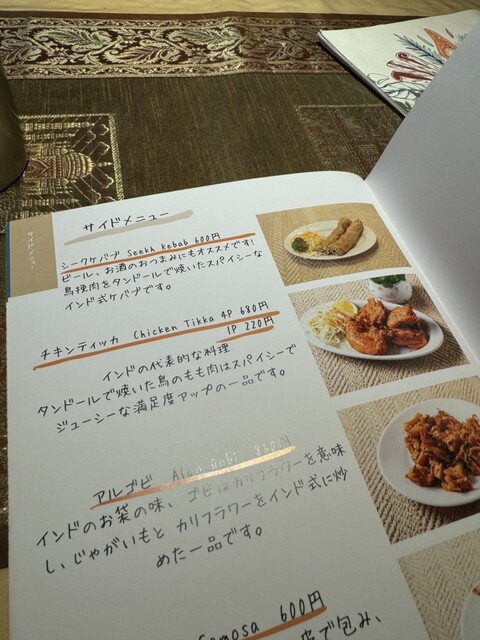 サイドメニュー
サイドメニュー
シークケバブ Seekh kebab 600円
ビール、お酒のおつまみにもオススメです!
鳥挽肉をタンドールで焼いたスパイシーな
インド式ケバブです。
チキンティッカ Chicken Tikka 4P 680円
1P 220円
インドの代表的な料理
タンドールで焼いた鳥のもも肉はスパイシーで
ジューシーな満足度アップの一品です。
アルゴビ Aloo Gobi 860円
インドのお袋の味、ゴビはカリフラワーを意味
し、じゃがいもと カリフラワーをインド式に炒
めた一品です。
Samosa 600円
皮で包み、